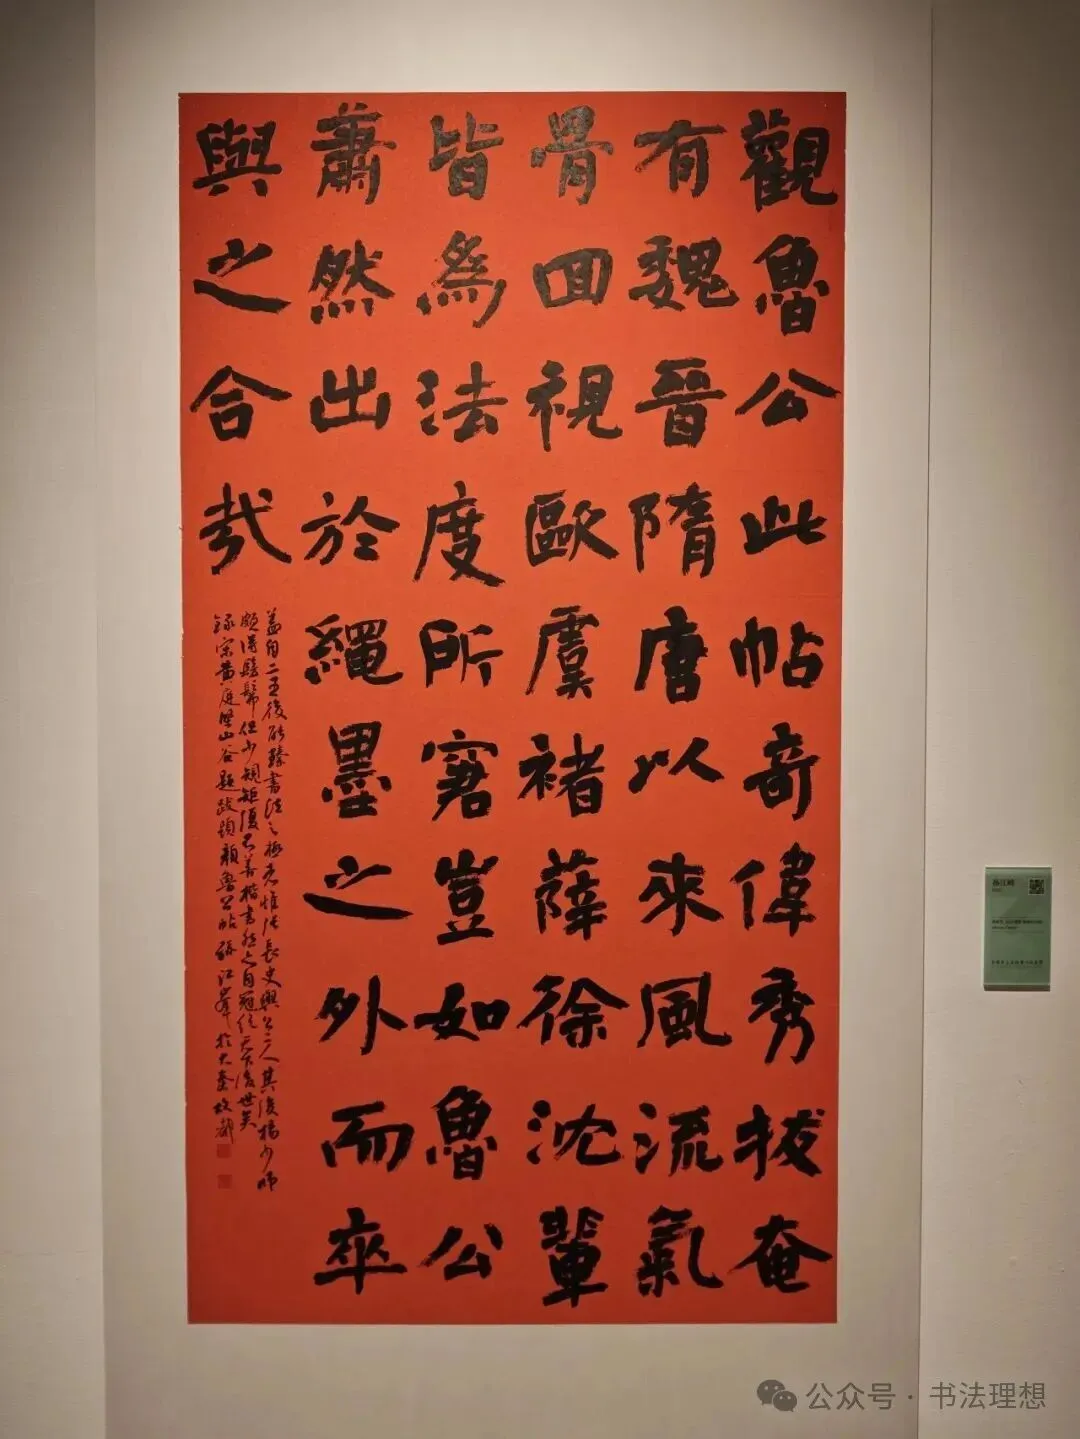 觀魯公此帖奇偉秀拔奄
有魏晉隋唐以來風流氣
骨回視歐虞褚薛徐沈輩
皆為法度所窘豈如魯公
蕭然出於繩墨之外而卒
與之合哉
蓋自二王後能臻書法之極者惟張長史與公二人其後楊少師
頗得髣髴但少規矩復不善楷書然亦自冠絕天下後世矣
錄宋黃庭堅山谷題跋題顏魯公帖孫江峰於大秦故都
公众号·书法理想